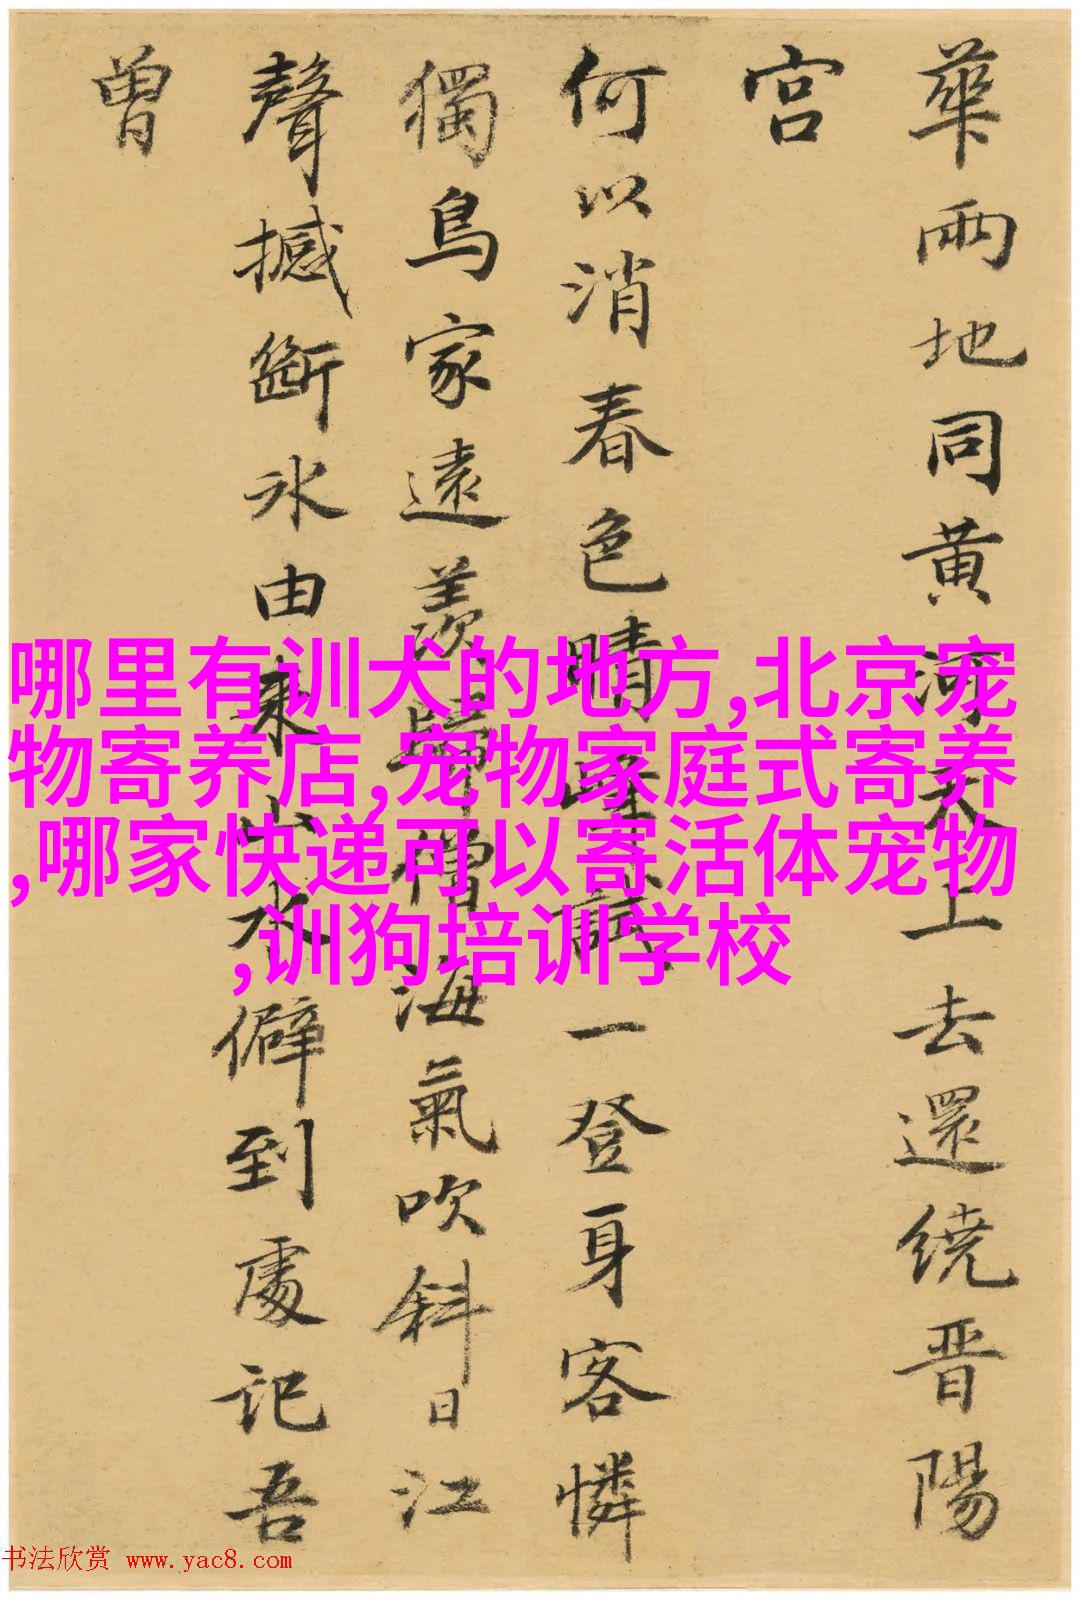 華兩地同黄河天上去還繞晋陽
宫
何以消春色晴 一登身客憐
獨鳥家遠羨歸僧海氣吹斜日江
聲撼斷冰由来山水僻到處記吾
曾
哪里有训犬的地方,北京宠
物寄养店,宠物家庭式寄养
,哪家快递可以寄活体宠物
,训狗培训学校
书法欣赏 www.yac8.com